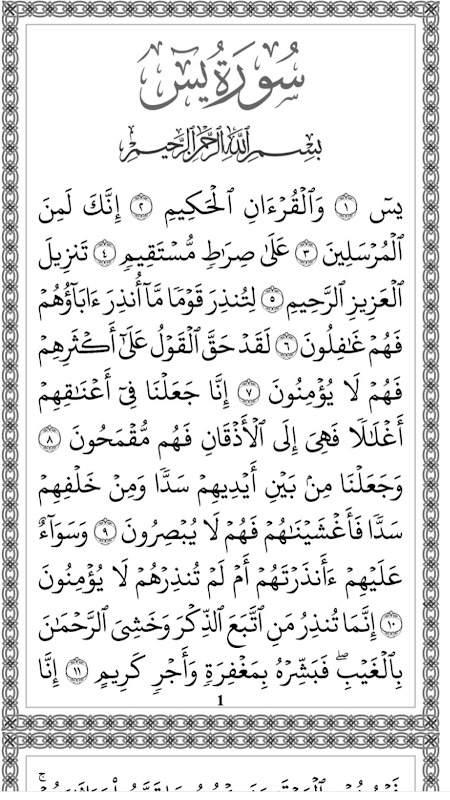 سُورَةُ يسٓ
بِسْمِ ٱللَّهِ ٱلرَّحْمَٰنِ ٱلرَّحِيمِ
يسٓ ١ وَٱلْقُرْءَانِ ٱلْحَكِيمِ ٢ إِنَّكَ لَمِنَ
ٱلْمُرْسَلِينَ ٣ عَلَىٰ صِرَٰطٍ مُّسْتَقِيمٍ ٤ تَنزِيلَ
ٱلْعَزِيزِ ٱلرَّحِيمِ ٥ لِتُنذِرَ قَوْمًا مَّآ أُنذِرَ ءَابَآؤُهُمْ
فَهُمْ غَٰفِلُونَ ٦ لَقَدْ حَقَّ ٱلْقَوْلُ عَلَىٰٓ أَكْثَرِهِمْ
فَهُمْ لَا يُؤْمِنُونَ ٧ إِنَّا جَعَلْنَا فِىٓ أَعْنَٰقِهِمْ
أَغْلَٰلًا فَهِىَ إِلَى ٱلْأَذْقَانِ فَهُم مُّقْمَحُونَ ٨
وَجَعَلْنَا مِنۢ بَيْنِ أَيْدِيهِمْ سَدًّا وَمِنْ خَلْفِهِمْ
سَدًّا فَأَغْشَيْنَٰهُمْ فَهُمْ لَا يُبْصِرُونَ ٩ وَسَوَآءٌ
عَلَيْهِمْ ءَأَنذَرْتَهُمْ أَمْ لَمْ تُنذِرْهُمْ لَا يُؤْمِنُونَ
١٠ إِنَّمَا تُنذِرُ مَنِ ٱتَّبَعَ ٱلذِّكْرَ وَخَشِىَ ٱلرَّحْمَٰنَ
بِٱلْغَيْبِ ۖ فَبَشِّرْهُ بِمَغْفِرَةٍ وَأَجْرٍ كَرِيمٍ ١١ إِنَّا
1